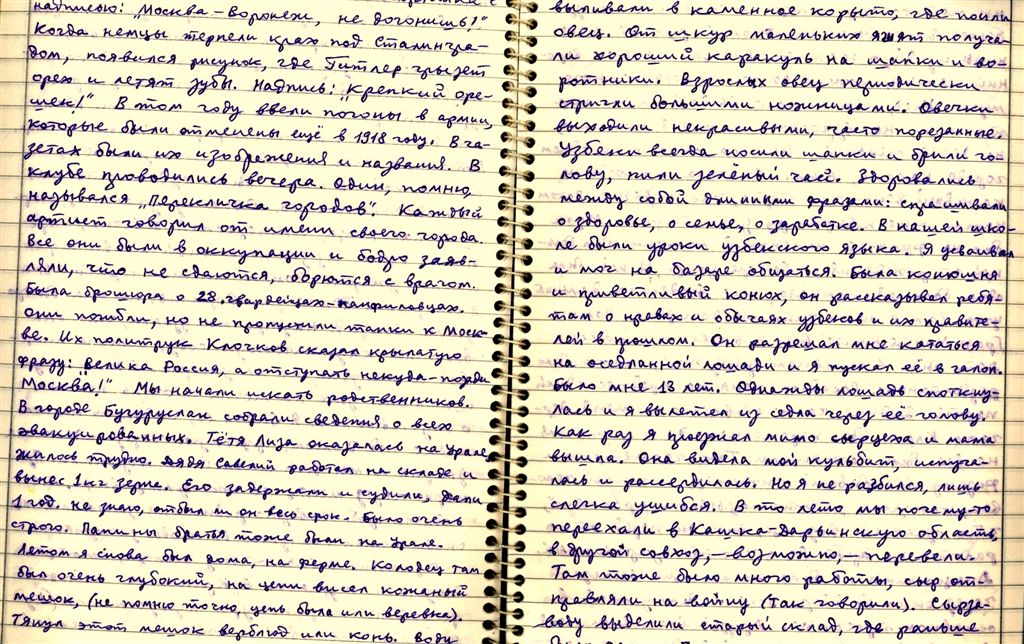 надписью: „Москва-Воронеж, не догонишь!"
Когда немцы терпели крах под Сталингра-
дом, появился рисунок, где Гитлер грызет
орех и летят зубы. Надпись: „Крепкий оре-
шек!" В том году ввели погоны в армии,
которые были отменены ещё в 1918 году. В га-
зетах были их изображения и названия. В
клубе проводились вечера. Один, помню,
назывался „Перекличка городов". Каждый
артист говорил от имени своего города.
Все они были в оккупации и бодро заяв-
ляли, что не сдаются, борются с врагом.
Была брошюра о 28 гвардейцах-панфиловцах.
Они погибли, но не пропустили танки к Моск-
ве. Их политрук Клочков сказал крылатую
фразу: „Велика Россия, а отступать некуда-позади
Москва!" Мы начали искать родственников.
В городе Бугуруслан собрали сведения о всех
эвакуированных. Тётя Лиза оказалась на Урале,
жилось трудно. Дядя Савелий работал на складе и
вынес 1 кг зерна. Его задержали и судили, дали
1 год. Не знаю, отбыл ли он весь срок. Было очень
строго. Папины братья тоже были на Урале.
Летом я снова был дома, на ферме. Колодец там
был очень глубокий, на цепи висел кожаный
мешок, (не помню точно, цепь была или веревка).
Тянул этот мешок верблюд или конь. Воду
выливали в каменное корыто, где поили
овец. От шкур маленьких ягнят получа-
ли хороший каракуль на шапки и во-
ротники. Взрослых овец периодически
стригли большими ножницами. Овечки
выходили некрасивыми, часто порезанные.
Узбеки всегда носили шапки и брили го-
лову, пили зелёный чай. Здоровались
между собой длинными фразами: спрашивали
о здоровье, о семье, о заработке. В нашей шко-
ле были уроки узбекского языка. Я усваивал
и мог на базаре общаться. Была конюшня
и приветливый конюх, он рассказывал ребя-
там о нравах и обычаях узбеков и их правите-
лей в прошлом. Он разрешал мне кататься
на оседланной лошади и я пускал её в галоп.
Было мне 13 лет. Однажды лошадь споткну-
лась и я вылетел из седла через её голову.
Как раз я проезжал мимо сырцеха и мама
вышла. Она видела мой кульбит, испуга-
лась и рассердилась. Но я не разбился, лишь
слегка ушибся. В то лето мы почему-то
переехали в Кашка-Дарьинскую область,
в другой совхоз, – возможно, – перевели.
Там тоже было много работы, сыр от-
правляли на войну (так говорили). Сырза-
воду выделили старый склад, где раньше